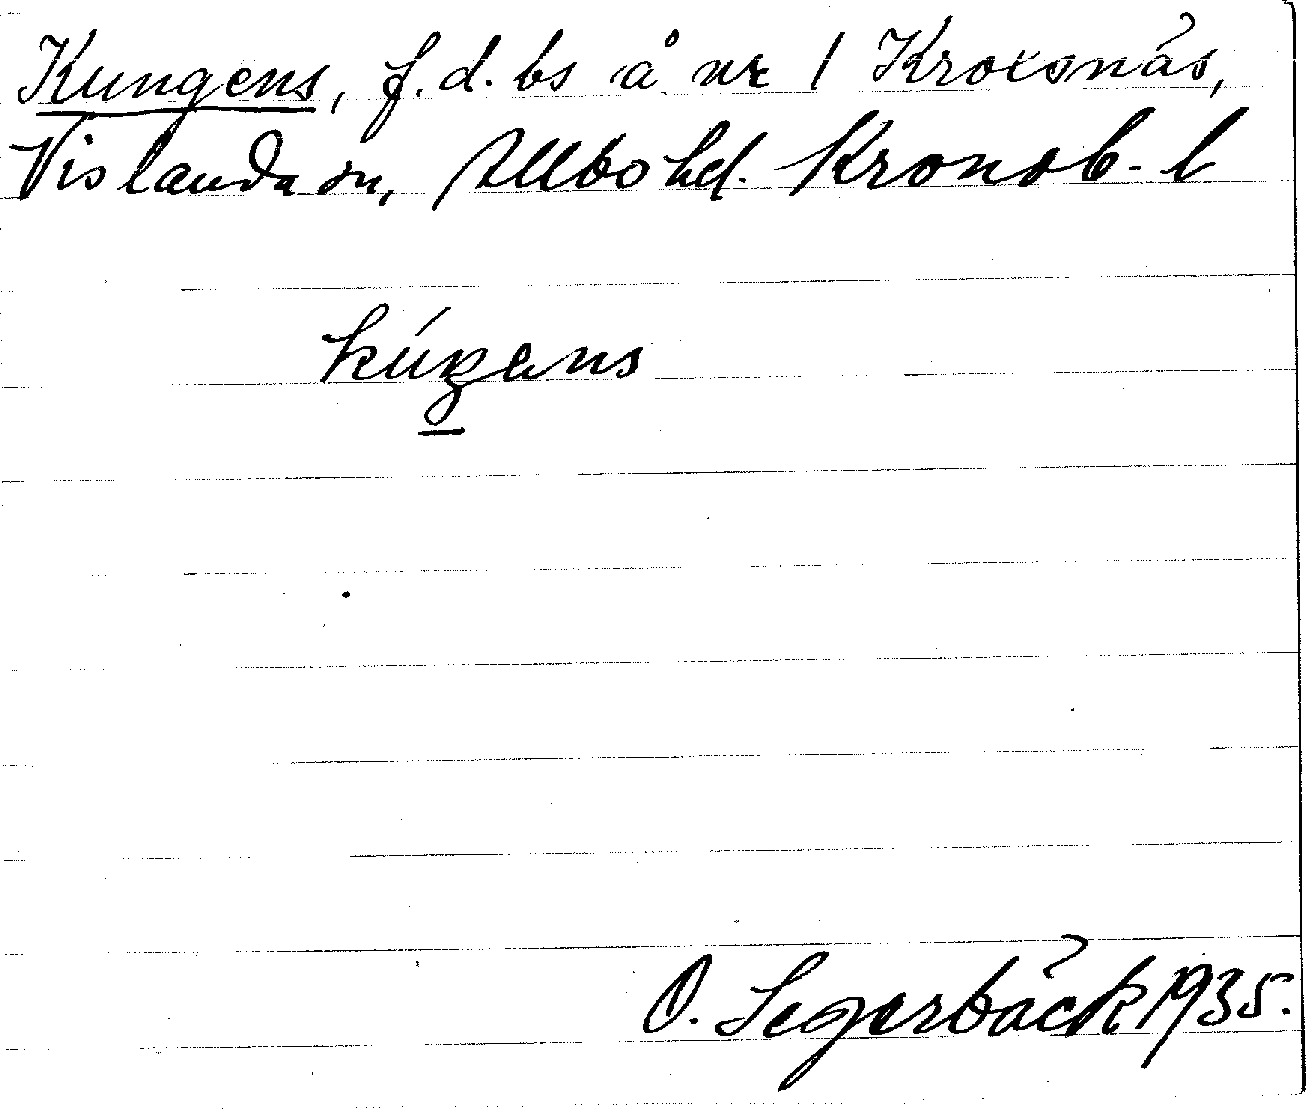 Kungens, f.d. bs å nr 1 Kroxsnäs,
Vislanda sn, Allbo hd. Kronob. l
kúgens
O. Segerbäck 1935.